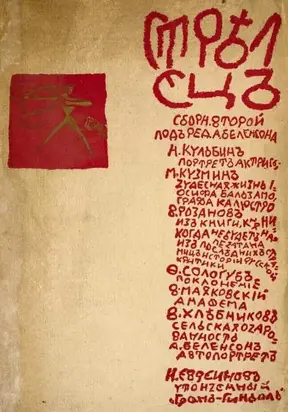 СТРѢЛ
ЕЦЪ
СБОРН.ВТОРОЙ
ПОДЪ РЕД А.БЕЛЕНСОНА
Н.КУЛЬБИН
ПОРТРЕТЪ АКТРИСЫ
М.КУЗМИН
ЧУДЕСНАЯ ЖИЗНЬ I-
ОСИФА БАЛЬЗАМО,
ГРАФА КАЛIОСТРО
В.РОЗАНОВЪ
ИЗЪ КНИГИ, К. НИ
КОГДА НЕ БУДЕТЪ НА
ПЕЧАТАНА
ИЗЪ ПОСЛѢДНИХЪ СТР.
ИСТОРIИ РУССКОЙ
КРИТИКИ
Ѳ.СОЛОГУБЪ
ПОКЛОНЕНIЕ
В.МАЯКОВСКIЙ
АНАФЕМА
В.ХЛѢБНИКОВЪ
СЕЛЬСКАЯ ОЧАРО-
ВАННОСТЬ
А.БЕЛЕНСОН
АВТОПОРТРЕТЪ
Н.ЕВРЕИНОВЪ
УТОНЧЕННЫЙ
"ГРАНЪ-ГИНЬОЛЬ"